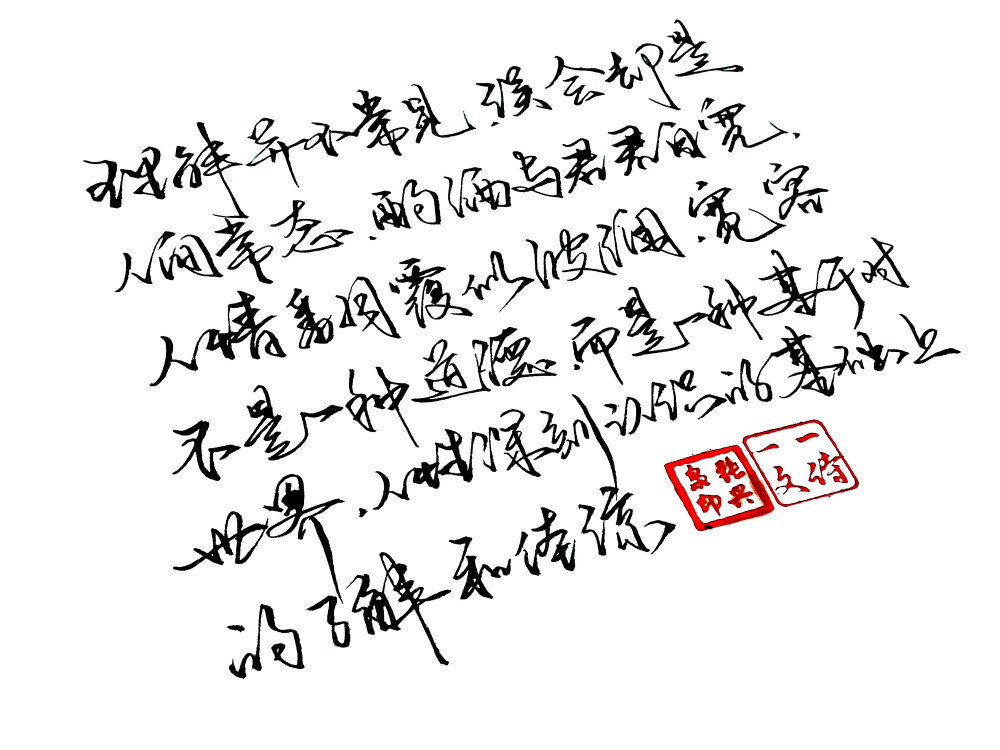 理解并不常见,误会却是
人间常态,酌酒与君君自宽,
人情翻覆似波澜,宽容
不是一种道德,而是一种基于对
世界,人性深刻认识的基础上
的了解和体谅